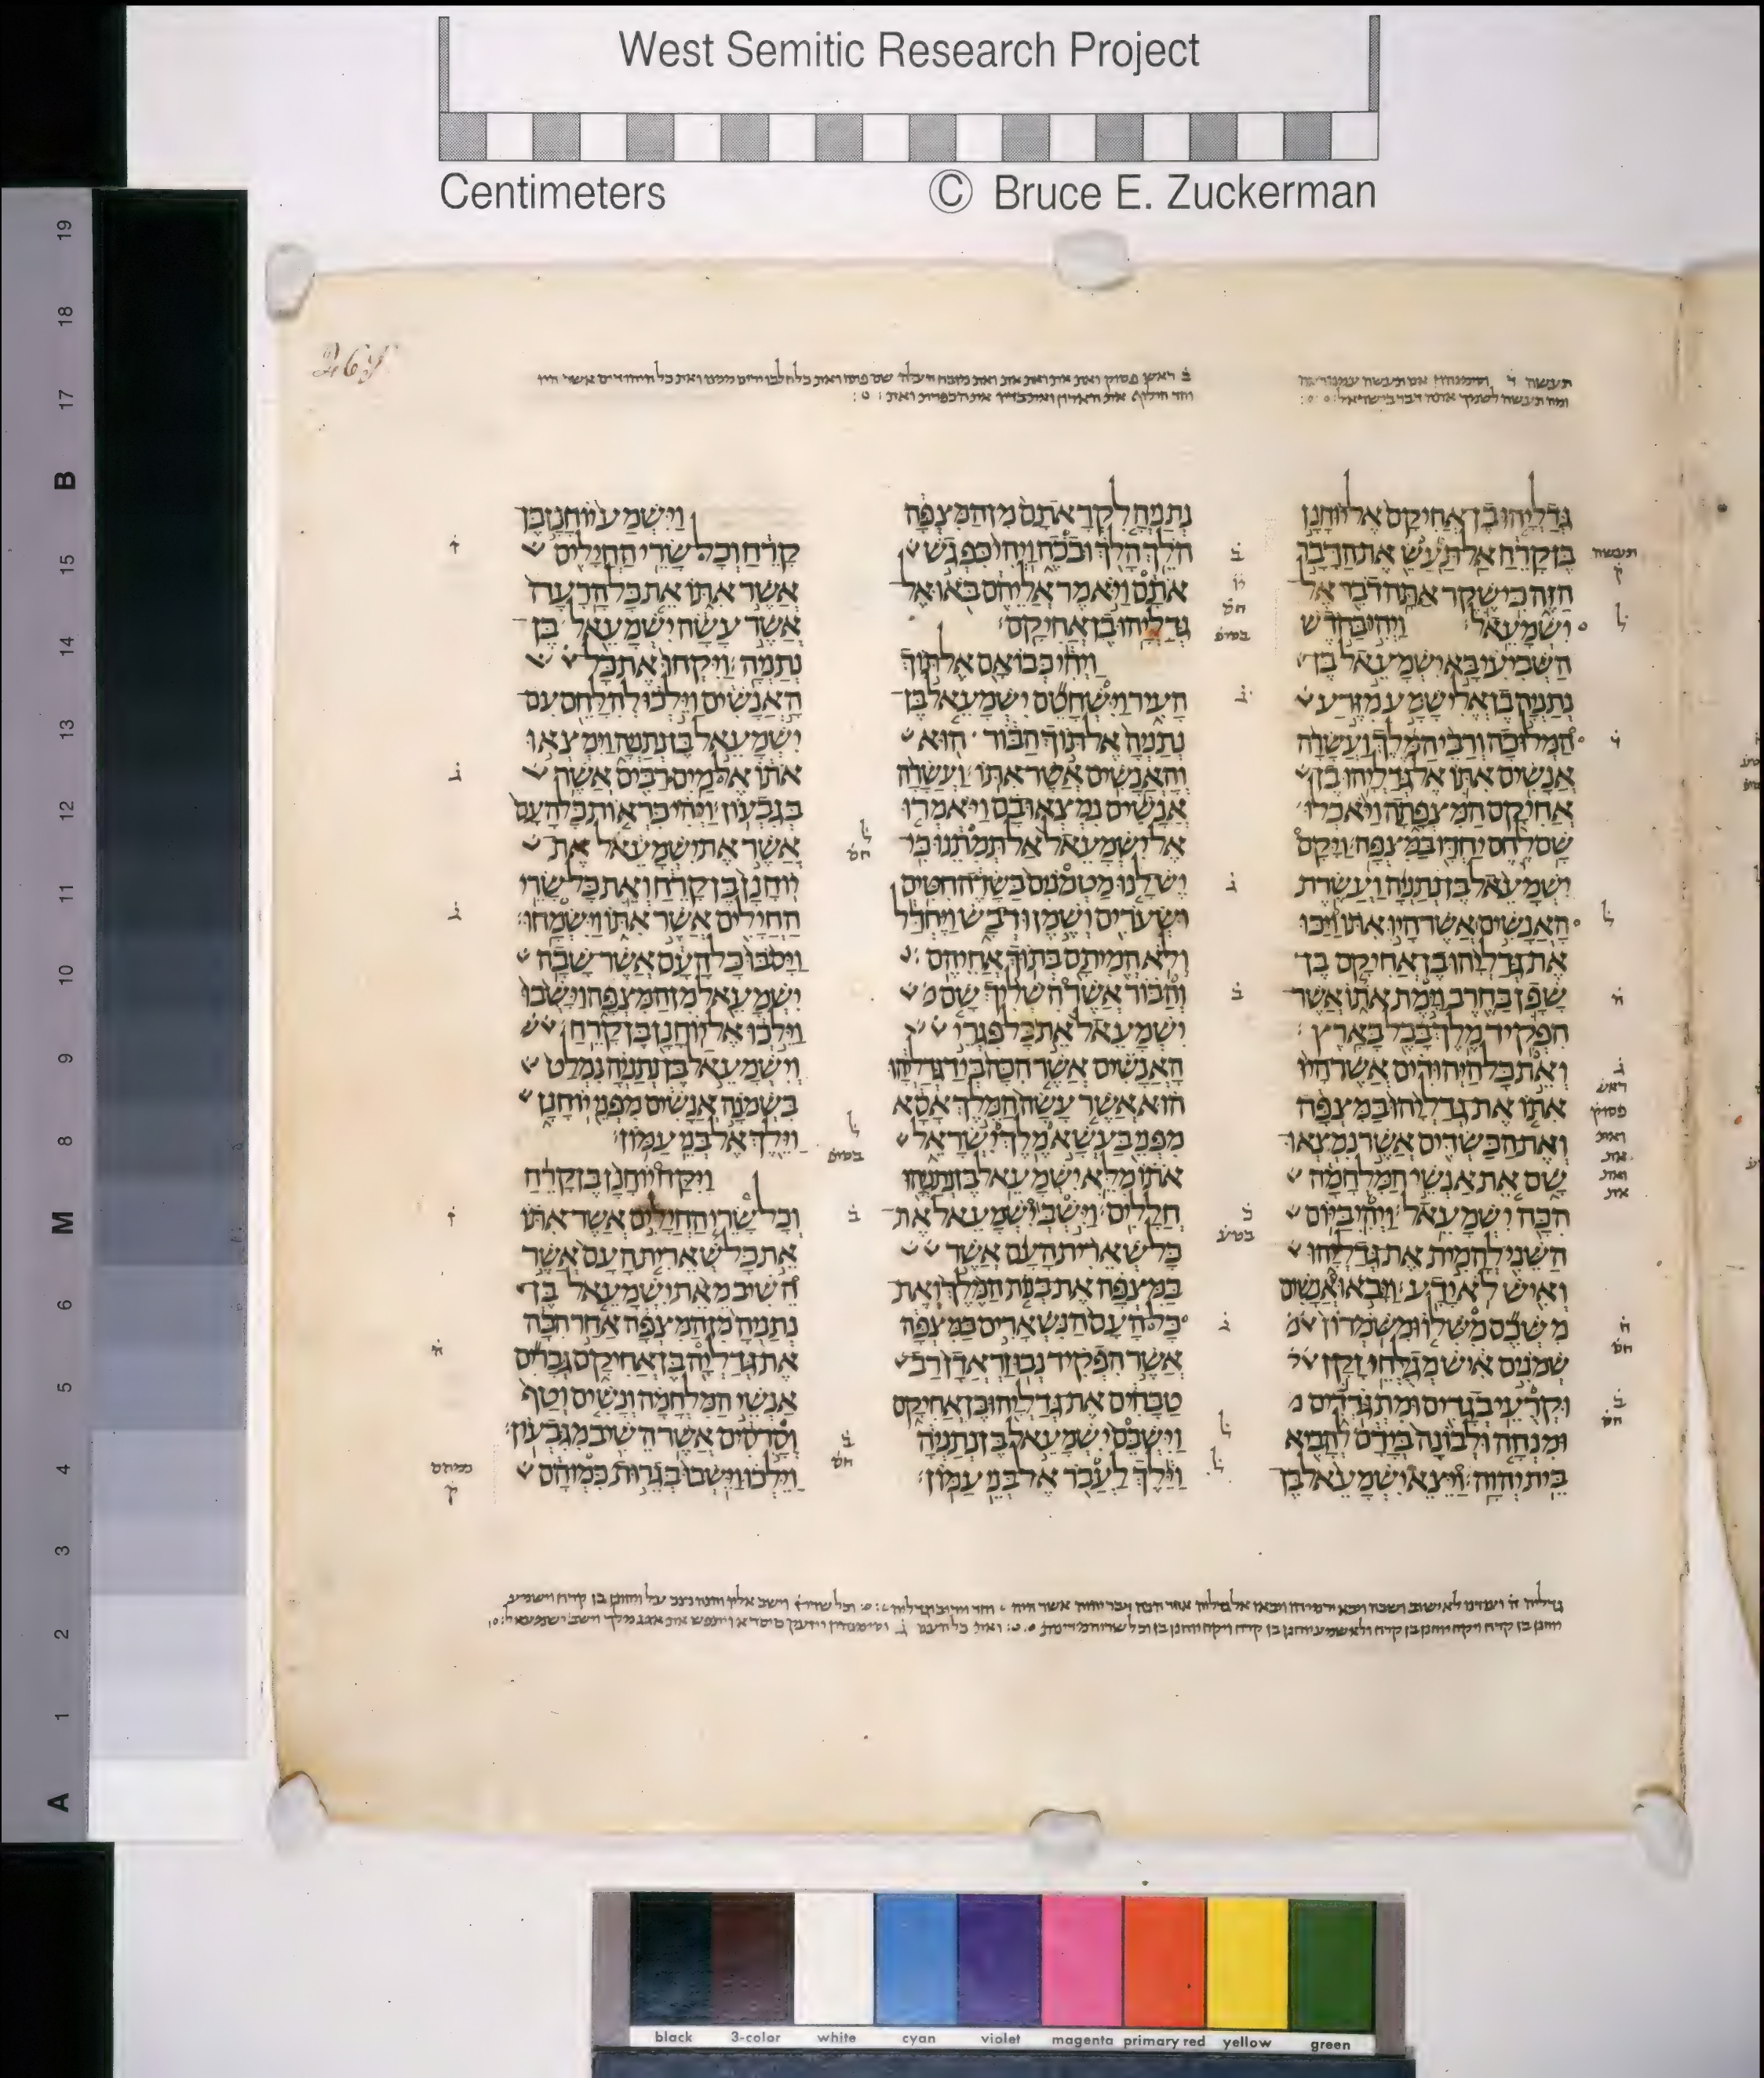 West Semitic Research Project
Centimeters © Bruce E. Zuckerman
גדליהו בן אחיקם אל יוחנן
בן קרח אל תעש את הדבר
הזה כי שקר אתה דבר אל
ישמעאל׃ ויהי בחדש
השביעי בא ישמעאל בן
נתניה בן אלישמע מזרע
המלוכה ורבי המלך ועשרה
אנשים אתו אל גדליהו בן
אחיקם המצפתה ויאכלו
שם לחם יחדו במצפה׃ ויקם
ישמעאל בן נתניה ועשרת
האנשים אשר היו אתו ויכו
את גדליהו בן אחיקם בן
שפן בחרב וימת אתו אשר
הפקיד מלך בבל בארץ׃
ואת כל היהודים אשר היו
אתו את גדליהו במצפה
ואת הכשדים אשר נמצאו
שם את אנשי המלחמה
הכה ישמעאל׃ ויהי ביום
השני להמית את גדליהו
ואיש לא ידע׃ ויבאו אנשים
משכם משלו ומשמרון
שמנים איש מגלחי זקן
וקרעי בגדים ומתגדדים
ומנחה ולבונה בידם להביא
בית יהוה׃ ויצא ישמעאל בן
נתניה לקראתם מן המצפה
הלך הלך ובכה ויהי כפגש
אתם ויאמר אליהם באו אל
גדליהו בן אחיקם׃
ויהי כבואם אל תוך
העיר וישחטם ישמעאל בן
נתניה אל תוך הבור הוא
והאנשים אשר אתו׃ ועשרה
אנשים נמצאו בם ויאמרו
אל ישמעאל אל תמתנו כי
יש לנו מטמנים בשדה חטים
ושערים ושמן ודבש ויחדל
ולא המיתם בתוך אחיהם׃
והבור אשר השליך שם
ישמעאל את כל פגרי
האנשים אשר הכה ביד גדליהו
הוא אשר עשה המלך אסא
מפני בעשא מלך ישראל
אתו מלא ישמעאל בן נתניהו
חללים׃ וישב ישמעאל את
כל שארית העם אשר
במצפה את בנות המלך ואת
כל העם הנשארים במצפה
אשר הפקיד נבוזראדן רב
טבחים את גדליהו בן אחיקם
וישבם ישמעאל בן נתניה
וילך לעבר אל בני עמון׃
וישמע יוחנן בן
קרח וכל שרי החילים
אשר אתו את כל הרעה
אשר עשה ישמעאל בן
נתניה׃ ויקחו את כל
האנשים וילכו להלחם עם
ישמעאל בן נתניה וימצאו
אתו אל מים רבים אשר
בגבעון׃ ויהי כראות כל העם
אשר את ישמעאל את
יוחנן בן קרח ואת כל שרי
החילים אשר אתו וישמחו׃
ויסבו כל העם אשר שבה
ישמעאל מן המצפה וישבו
וילכו אל יוחנן בן קרח׃
וישמעאל בן נתניה נמלט
בשמנה אנשים מפני יוחנן
וילך אל בני עמון׃
ויקח יוחנן בן קרח
וכל שרי החילים אשר אתו
את כל שארית העם אשר
השיב מאת ישמעאל בן
נתניה מן המצפה אחר הכה
את גדליה בן אחיקם גברים
אנשי המלחמה ונשים וטף
וסרסים אשר השיב מגבעון׃
וילכו וישבו בגרות כמוהם
19
18
17
B
15
14
13
12
11
10
9
8
M
6
5
4
3
2
1
A
black 3-color white cyan violet magenta primary red yellow green